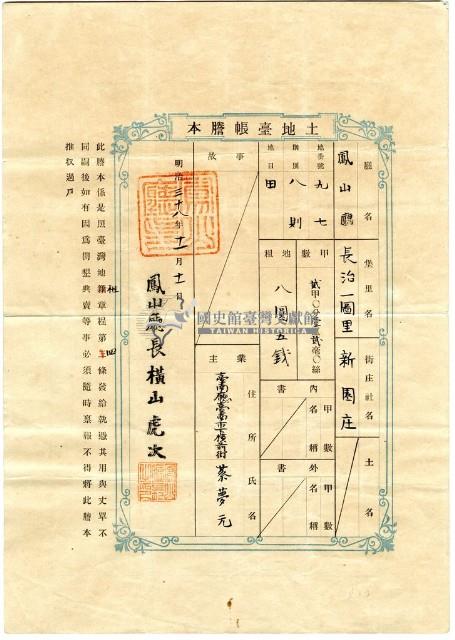 土地臺帳謄本
廳名
鳳山廳
堡里名
長治一圖里
街庄社名
新園庄
土名
地番號
九七
則別
八則
地目
田
甲數
貳甲〇分壹厘貳毫〇絲
地租
八圓五錢
內書
甲數
名稱
外書
甲數
名稱
事故
業主
住所
氏名
臺南廳臺南市
蔡夢元
明治三十八年十一月十一日
鳳山廳長橫山虎次
此謄本係是照臺灣地籍規章程第四條發給就過其用與丈單不
同嗣後如有因爲開墾典賣等事必須隨時稟報不得將此謄本
推收過戶
國史館臺灣文獻館
TAIWAN HISTORICA